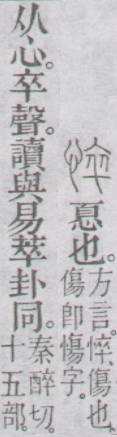 悴𢝊也。方言。悴、傷也。
傷卽慯字。
从心。卒聲。讀與易萃卦同。秦醉切。
十五部。